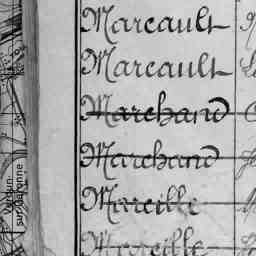 Marcault
Marcault
Marchand
Marchand
Marcille
Marcille
Verdun-
sur-Garonne